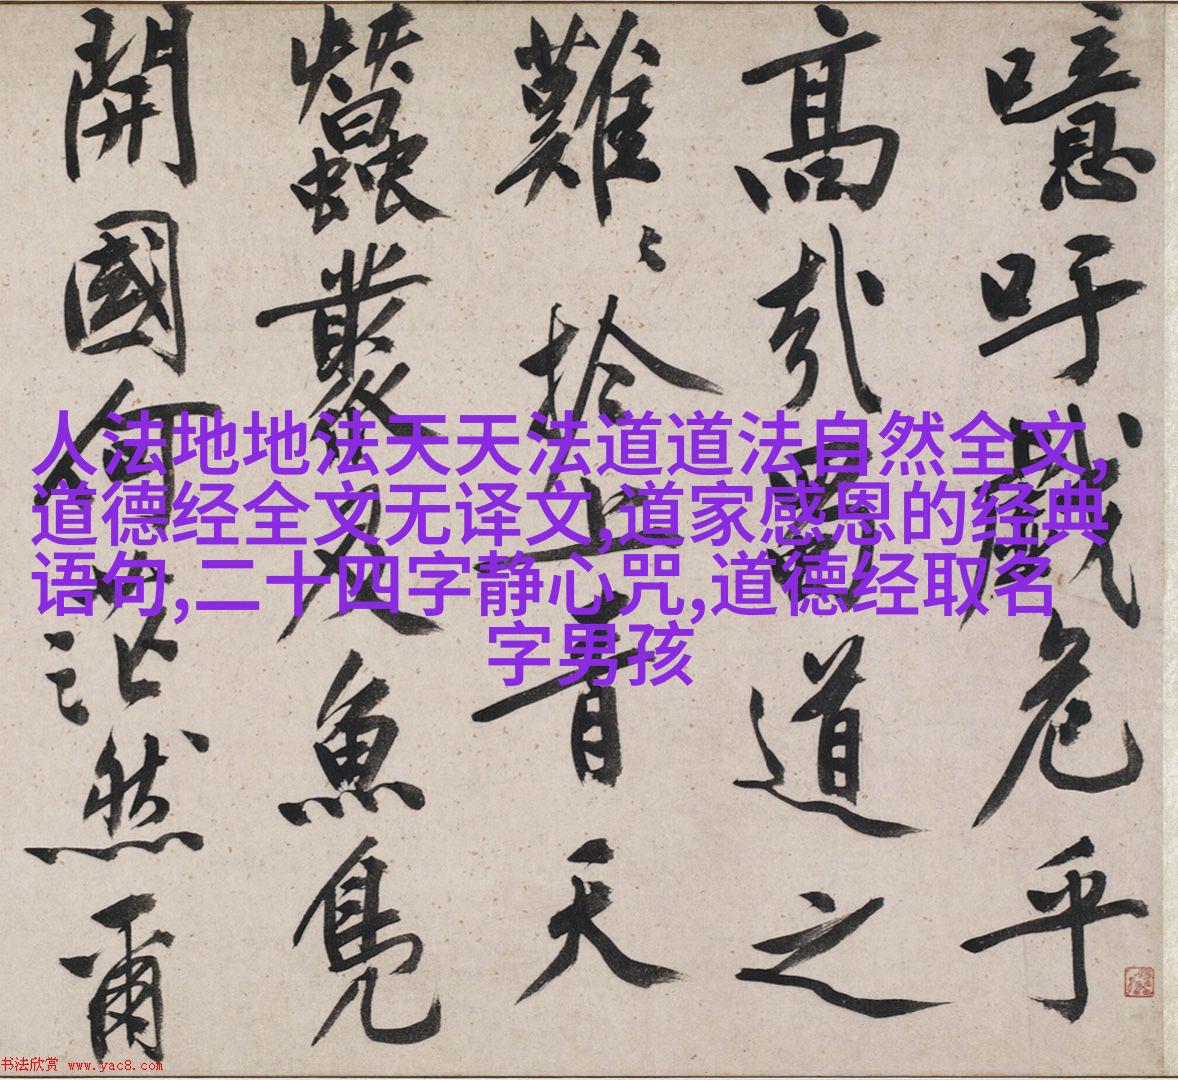 噫吁戲危乎
高哉蜀道之
難〻於上青天
蠶叢及魚鳧
開國何茫然爾
人法地地法天天法道道法自然全文,
道德经全文无译文,道家感恩的经典
语句,二十四字静心咒,道德经取名
字男孩
书法欣赏 www.yac8.com